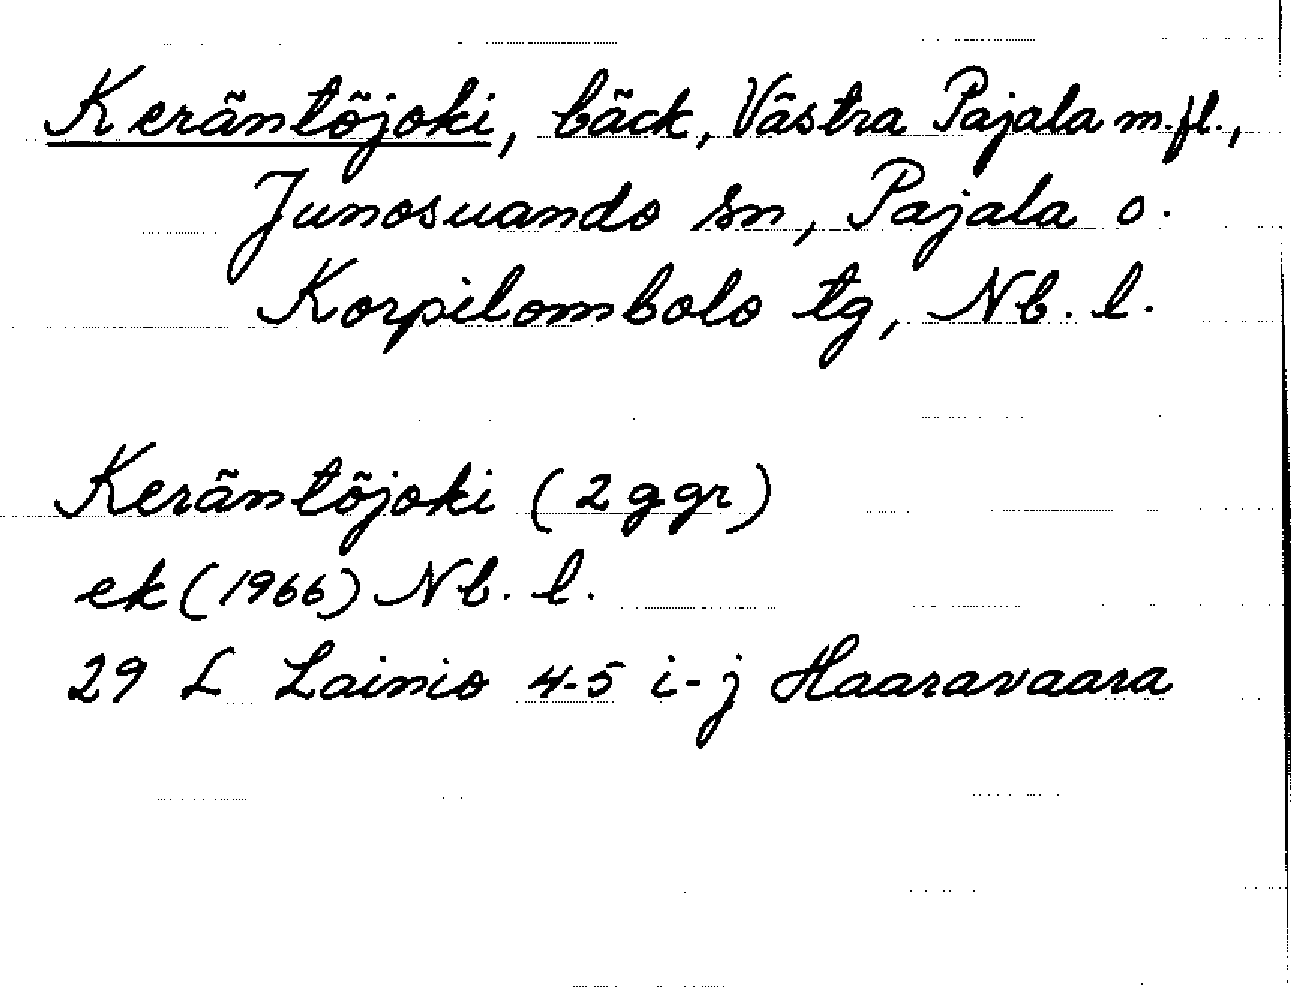 Keräntöjoki, bäck, Västra Pajala m.fl.,
Junosuando sn, Pajala o.
Korpilombolo tg, Nb. l.
Keräntöjoki (2 ggr)
ek (1966) Nb. l.
29 L Lainio 4-5 i-j Haaravaara